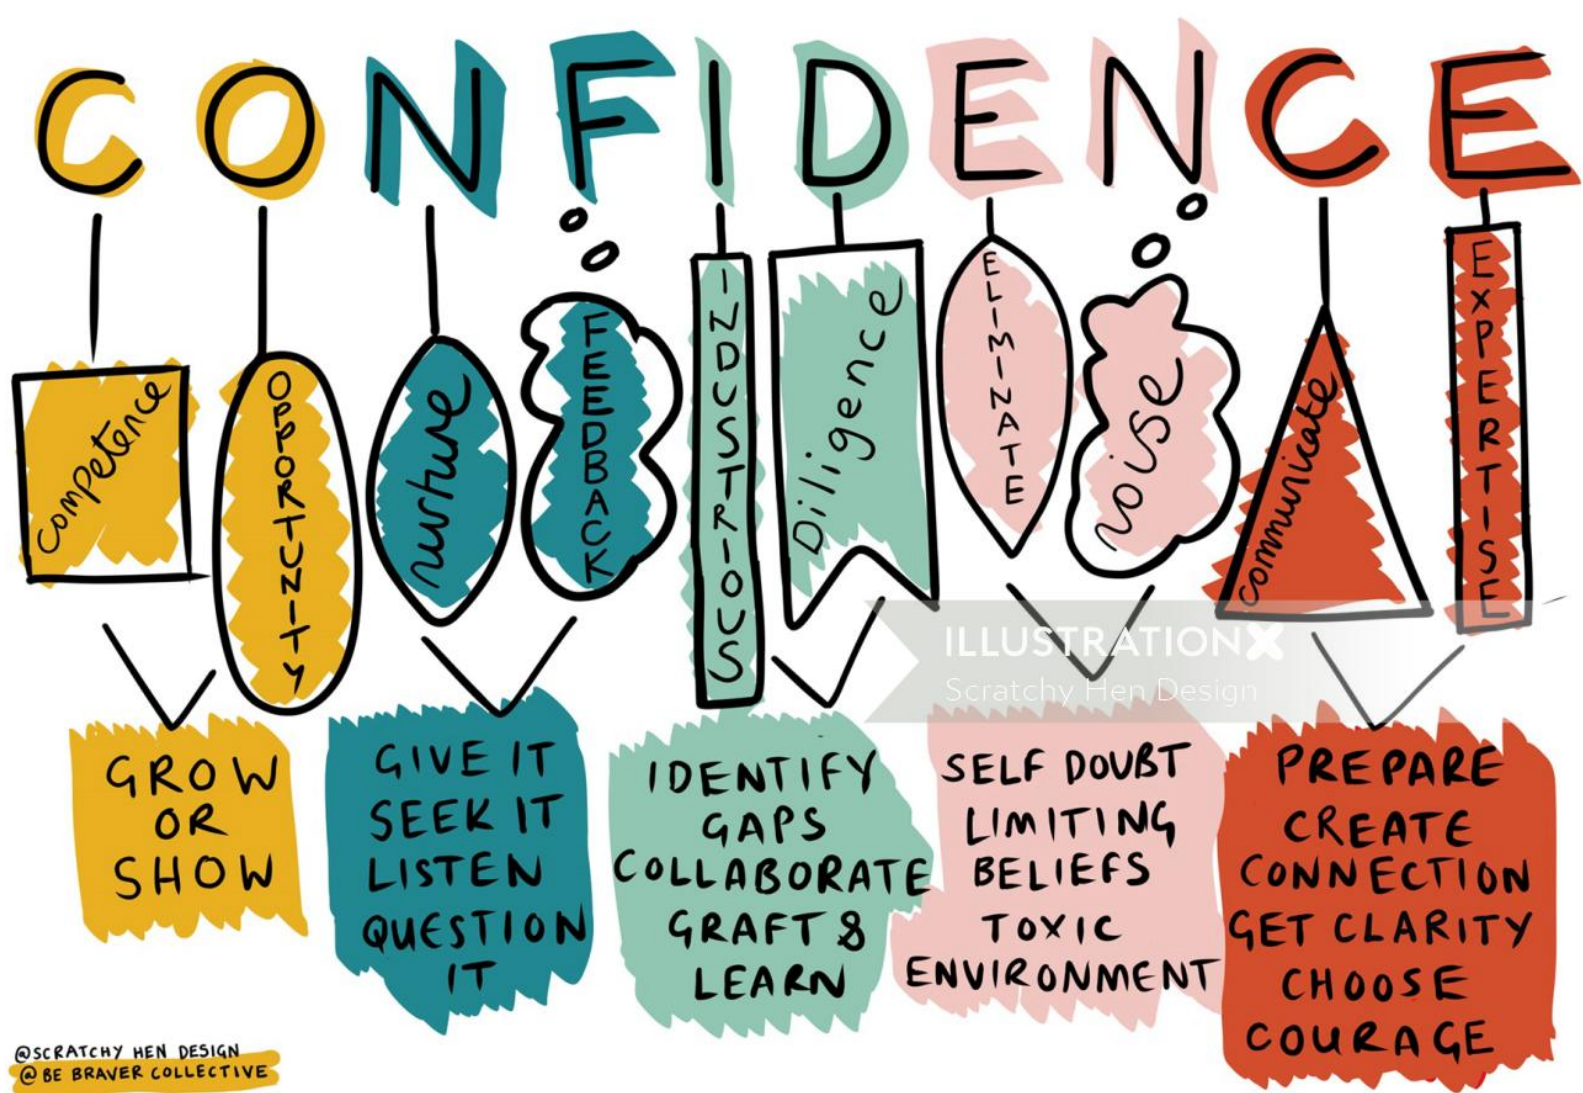 CONFIDENCE
competence
OPPORTUNITY
nurture
FEEDBACK
INDUSTRIOUS
Diligence
ELIMINATE
noise
communicate
EXPERTISE
GROW
OR
SHOW
GIVE IT
SEEK IT
LISTEN
QUESTION
IT
IDENTIFY
GAPS
COLLABORATE
GRAFT &
LEARN
SELF DOUBT
LIMITING
BELIEFS
TOXIC
ENVIRONMENT
PREPARE
CREATE
CONNECTION
GET CLARITY
CHOOSE
COURAGE
ILLUSTRATIONX
Scratchy Hen Design
@SCRATCHY HEN DESIGN
@BE BRAVER COLLECTIVE